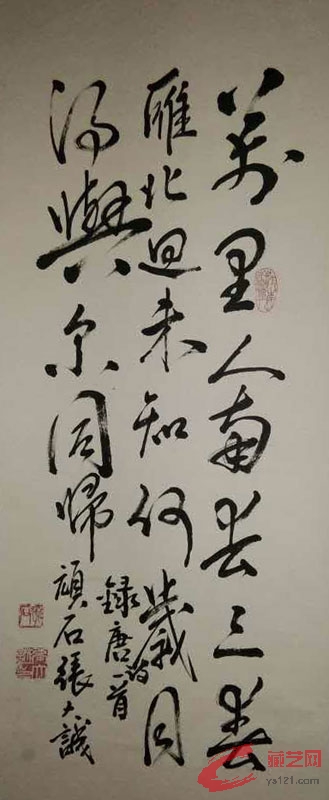 萬里人南去三春
雁北迴未知何歲月
得與尔同歸
録唐詩一首
頑石張大識
藏艺网
ys121.com